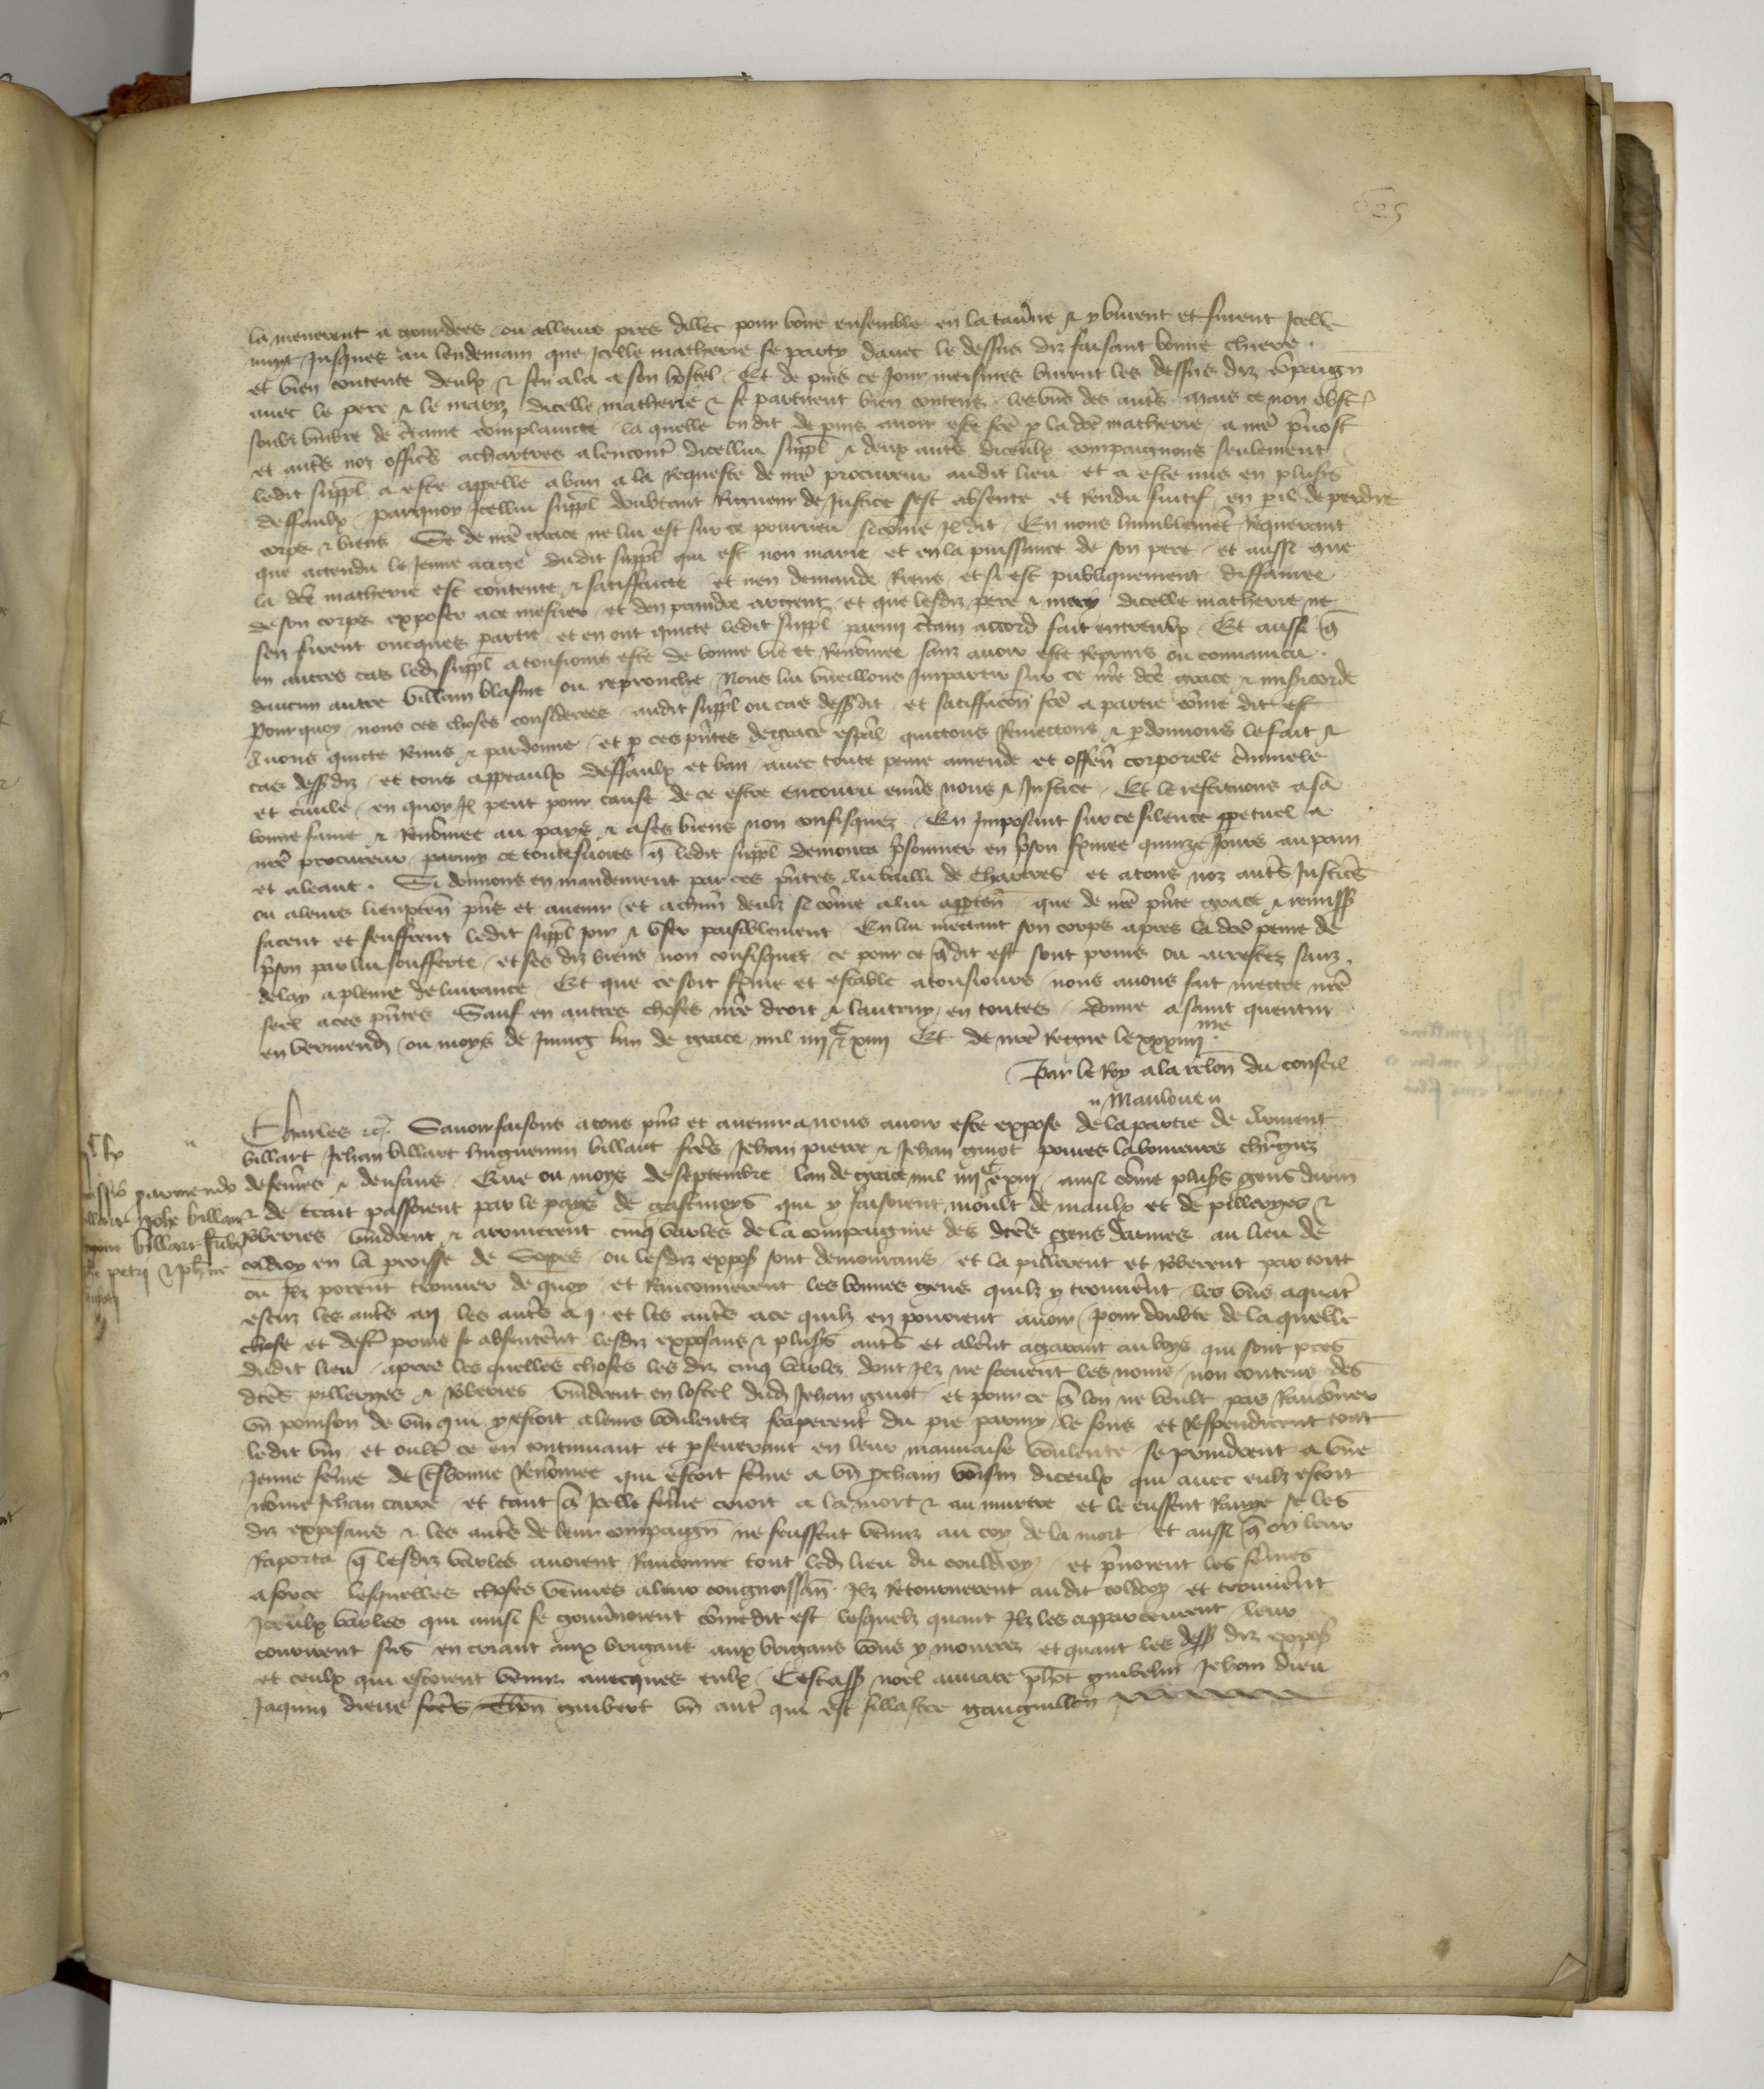 la menerent a gourdees ou alleurs pres dillec pour boire ensemble en la taverne & y burent et firent Icelle
nuyt Jusques au lendemain que Icelle matherie se party davec le dessus diz faisant bonne chiere
et bien contente deulx & sen ala a son hostel Et de puis ce Jour meismes burent les dessus diz compaign
avec le pere & le mary dicelle matherie & se partirent bien contens les uns des autres mais ce non obst
soubz umbre de certaine complaincte la quelle on dit de puis avoir este fce p la dce matherie a nre prevost
et autres noz offices a chartres alencontre dicellui suppl & deux autres diceulx compaignons seulement
ledit suppl a este appelle a ban a la Requeste de nre procureur audit lieu et a este mis en plusrs
deffaulx parquoy Icellui suppl doubtant Rigueur de Justice sest absente et Rendu fuitif en peril de perdre
corps & biens Se de nre grace ne lui est sur ce pourveu si come Il dit En nous humblement Requerant
que attendu le Jeune aage dudit suppl qui est non marie et en la puissance de son pere et aussi que
la dce matherie est contente & satiffacte et nen demande Riens et si est publiquement diffamee
de son corps exposer a ce mestier et den prandre argent et que lesdiz pere & mary dicelle matherie ne
sen firent oncques partie et en ont quicte ledit suppl parmi certain accord fait entreulx Et aussi q
en autres cas led suppl a tousiours este de bonne vie et Renommee sanz avoir este Reprins ou convaincu
daucun autre villain blasme ou reprouche Nous lui vueillons Impartir sur ce nre dce grace & misericorde
Pourquoy nous ces choses considerees audit suppl ou cas dessusdit et satiffacon fce a partie come dit est
Avons quicte Remis & pardonne et p ces pntes de grace espal quictons Remectons & pdonnons le fait &
cas dess diz et tous appeaulx deffaulx et ban avec toute peine amende et offen corporele criminele
et civile en quoy Il peut pour cause de ce estre encouru envers nous & Justice Et le restituons a sa
bonne fame & Renommee au pays & a ses biens non confisquez En Imposant sur ce silence ppetuel a
nre procureur parmy ce toutesvoies q ledit suppl demoura prisonnier en prison fermee quinze Jours au pain
et a leaue Si donnons en mandement par ces pntes Au bailli de Chartres et a tous noz autres Justiciers
ou a leurs lieuxten pns et avenir et a chun deulx si come a lui apperten que de nre pnte grace & remiss
facent et seuffrent ledit suppl Joir & user paisiblement En lui mectant son corps apres la dce peine de
prison par lui soufferte et ses diz biens non confisquez ce pour ce q dit est sont prins ou arrestez sanz
delay a pleine delivrance Et que ce soit ferme et estable a tousiours nous avons fait mectre nre
seel a ces pntes Sauf en autres choses nre droit & lautruy en toutes donne a saint quentin
en vermend ou moys de Juing lan de grace mil iiiiC & xiiii Et de nre Regne le xxxiiiime
Par le Roy a la relon du conseil
Mauloue
Charles &c Savoir faisons a tous pns et avenir a nous avoir este expose de la partie de Arment
billart Jehan billart huguenin billart freres Jehan pierre & Jehan guiot povres laboureurs chargiez
de femes & denfans Que ou moys de septembre lan de grace mil iiiiC & xiii ainsi come plusrs gens darm
& de trait passoient par le pays de gastinoys qui y faisoient moult de maulx et de pilleryes &
Roberies vindrent & arriverent cinq varles de la compaignie des dces gens darmes au lieu de
coldroy en la proisse de Sopes ou lesdiz expos sont demourans et la pillerent et Roberent par tout
ou Ilz porent trouver de quoy et Ranconnerent les bonnes gens quilz y trouverent les uns a quatre
escuz les autres a ii les autres a i et les autres a ce quilz en povoient avoir Pour doubte de la quelle
chose et destre prins se absenterent lesdiz exposans & plusrs autres et alerent a garant au boys qui sont pres
dudit lieu apres les quelles choses les diz cinq varlez dont Ilz ne scevent les noms non contens des
dces pilleryes & Roberies vindrent en lostel dud Jehan guiot et pour ce q lon ne voult pas Ranconner
un poinson de vin qui y estoit a leurs voulentez fraperent du pie parmy le fons et Respendirent tout
ledit vin et oultre ce en continuant et pseverant en leur mauvaise voulente se prindrent a une
Jeune feme de tresbonne Renommee qui estoit feme a un prochain voisin diceulx qui avec eulx estoit
nome Jehan carre et tant q Icelle feme crioit a la mort & au murtre et le eussent Ravye se les
diz exposans & les autres de leur compaign ne feussent venuz au cry de la mort Et aussi q on leur
Raporta q lesdiz varles avoient Ranconne tout led lieu du couldroy et prenoient les femes
a force lesquelles choses venues a leur congnoissan Ilz Retournerent audit coldroy et trouverent
Iceulx varles qui ainsi se gouvernoient come dit est lesquelz quant Ilz les apparceurent leur
coururent sus en criant aux brigans aux brigans vous y mourrez et quant les dess diz expos
et ceulx qui estoient venuz avecques eulx Cestass noel Jehan dieu
Jaquin dieue freres guibert un autre qui est fillastre